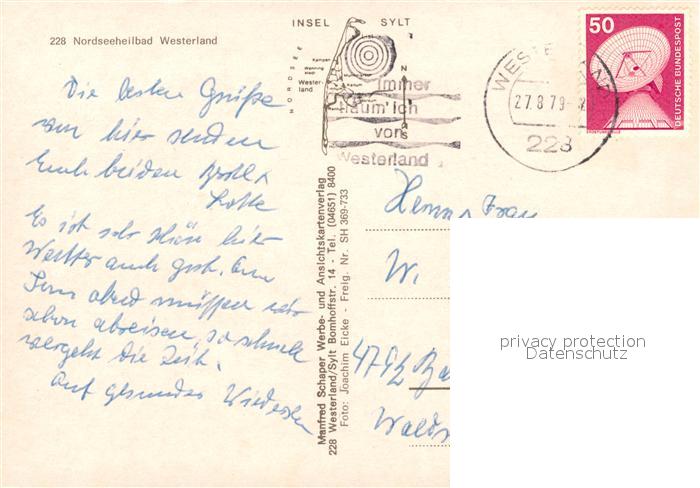 228 Nordseeheilbad Westerland
INSEL SYLT
NORDSEE
Kampen
Wenning
stedt
Wester-
land
Immer
träum' ich
von
Westerland
WESTERLAND
27.8.79
228
50
DEUTSCHE BUNDESPOST
ERDEFUNKSTELLE
Die besten Grüße
von hier senden
Euch beiden
Lotte
Es ist sehr schön hier
Wetter auch gut. Am
abend müssen wir
schon abreisen, so schnell
vergeht die Zeit.
Auf gesundes Wiedersehen
Manfred Schaper Werbe- und Ansichtskartenverlag
228 Westerland/Sylt Bomhoffstr. 14 - Tel. (04651) 8400
Foto: Joachim Eicke - Freig. Nr. SH 369-733
Herrn u. Frau
W.
4792 Ba
Wald
privacy protection
Datenschutz